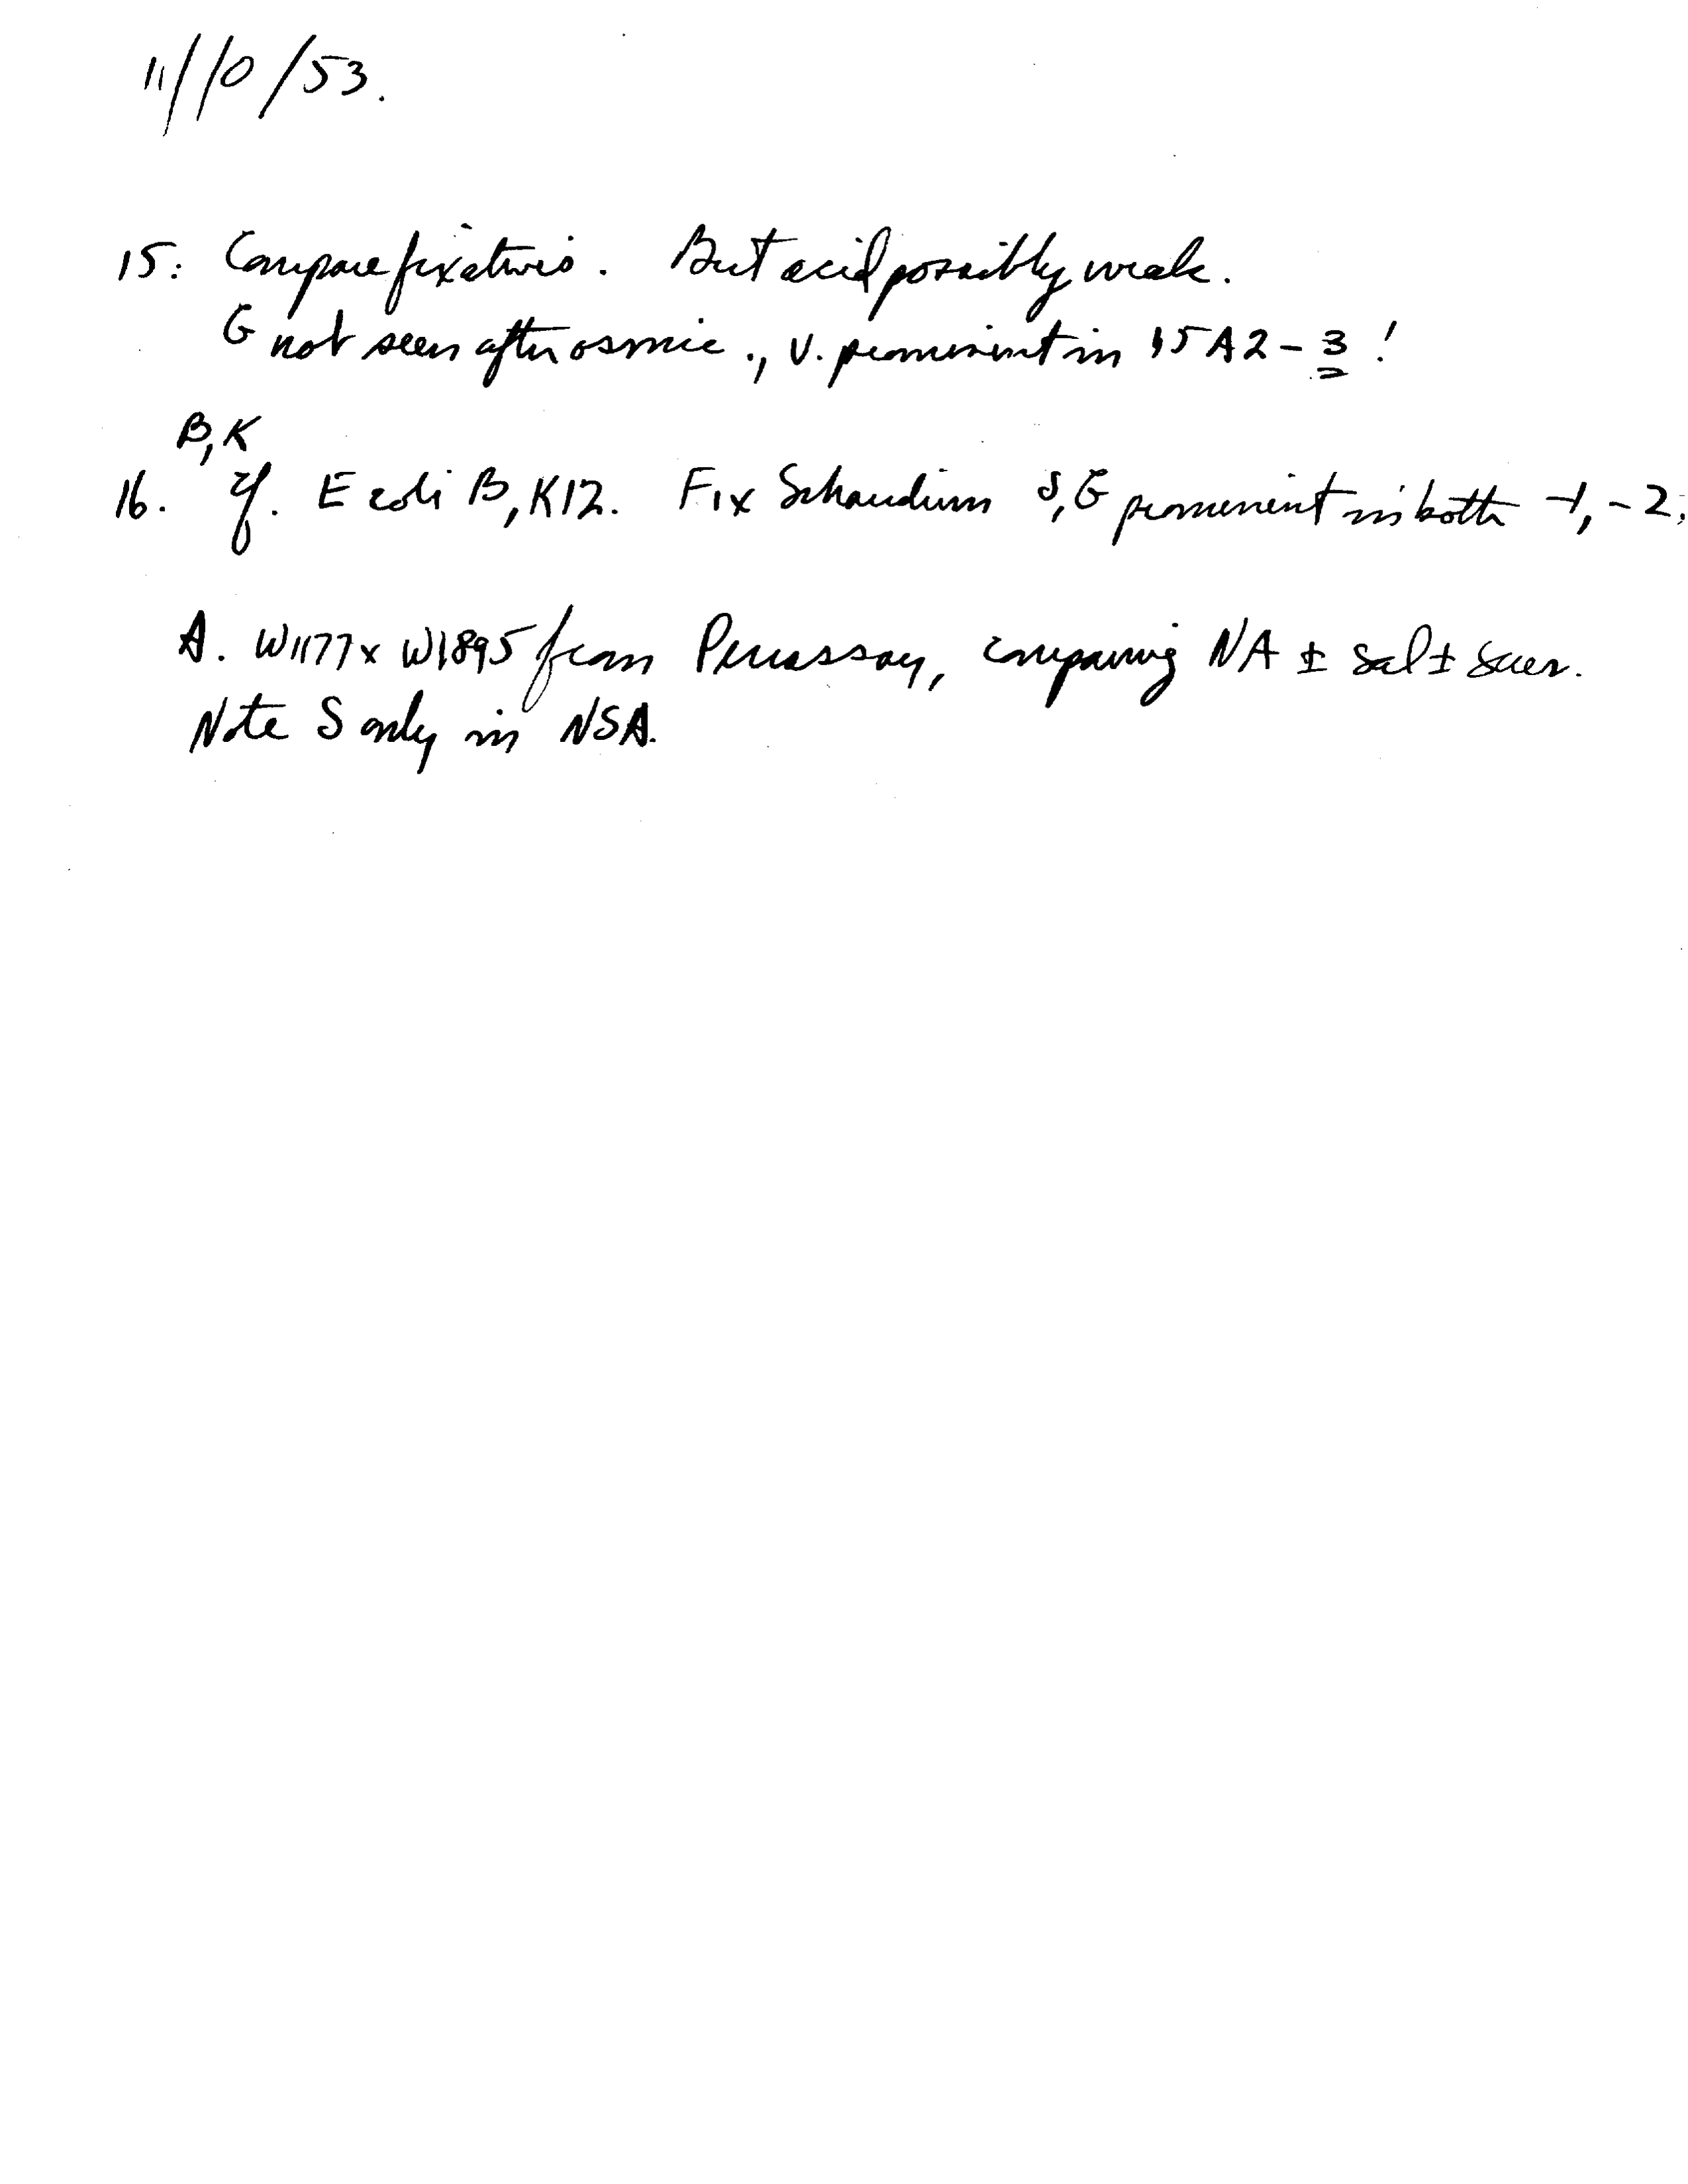 11/10/53.
15: Compare fixatives. But acid possibly weak.
G not seen after osmic., v. prominent in 15A2-3!
B,K
16. cf. E coli B, K12. Fix Schaudinn S, G prominent in both -1, -2.
A. W1177 x W1895 from Penassay, comparing NA ± sal ± sucr.
Note S only in NSA.